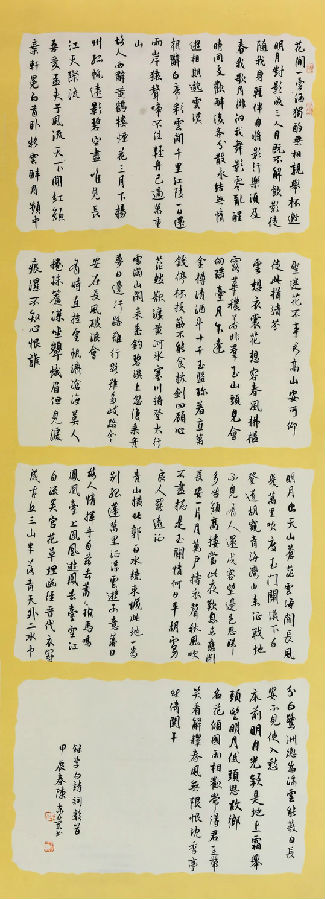 花间一壶酒独酌无相亲举杯邀
明月对影成三人月既不解饮影徒
随我身暂伴月将影行乐须及
春我歌月徘徊我舞影零乱醒
时同交欢醉后各分散永结无情
游相期邈云汉
朝辞白帝彩云间千里江陵一日还
两岸猿声啼不住轻舟已过万重
山
故人西辞黄鹤楼烟花三月下扬
州孤帆远影碧空尽唯见长
江天际流
吾爱孟夫子风流天下闻红颜
弃轩冕白首卧松云醉月频中
圣迷花不事君高山安可仰
徒此揖清芬
云想衣裳花想容春风拂槛
露华浓若非群玉山头见会
向瑶台月下逢
金樽清酒斗十千玉盘珍羞直万
钱停杯投箸不能食拔剑四顾心
茫然欲渡黄河冰塞川将登太行
雪满山闲来垂钓碧溪上忽复乘舟
梦日边行路难行路难多歧路今
安在长风破浪会
有时直挂云帆济沧海美人
卷珠帘深坐颦蛾眉但见泪
痕湿不知心恨谁
明月出天山苍茫云海间长风
几万里吹度玉门关汉下白
登道胡窥青海湾由来征战地
不见有人还戍客望边色思归
多苦颜高楼当此夜叹息未应闲
长安一片月万户捣衣声秋风吹
不尽总是玉关情何日平胡虏
良人罢远征
青山横北郭白水绕东城此地一为
别孤蓬万里征浮云游子意落日
故人情挥手自兹去萧萧班马鸣
凤凰台上凤凰游凤去台空江
自流吴宫花草埋幽径晋代衣冠
成古丘三山半落青天外二水中
分白鹭洲总为浮云能蔽日长
安不见使人愁
床前明月光疑是地上霜举
头望明月低头思故乡
名花倾国两相欢常得君王带
笑看解释春风无限恨沉香亭
北倚阑干
李白诗词数首
甲辰春陈